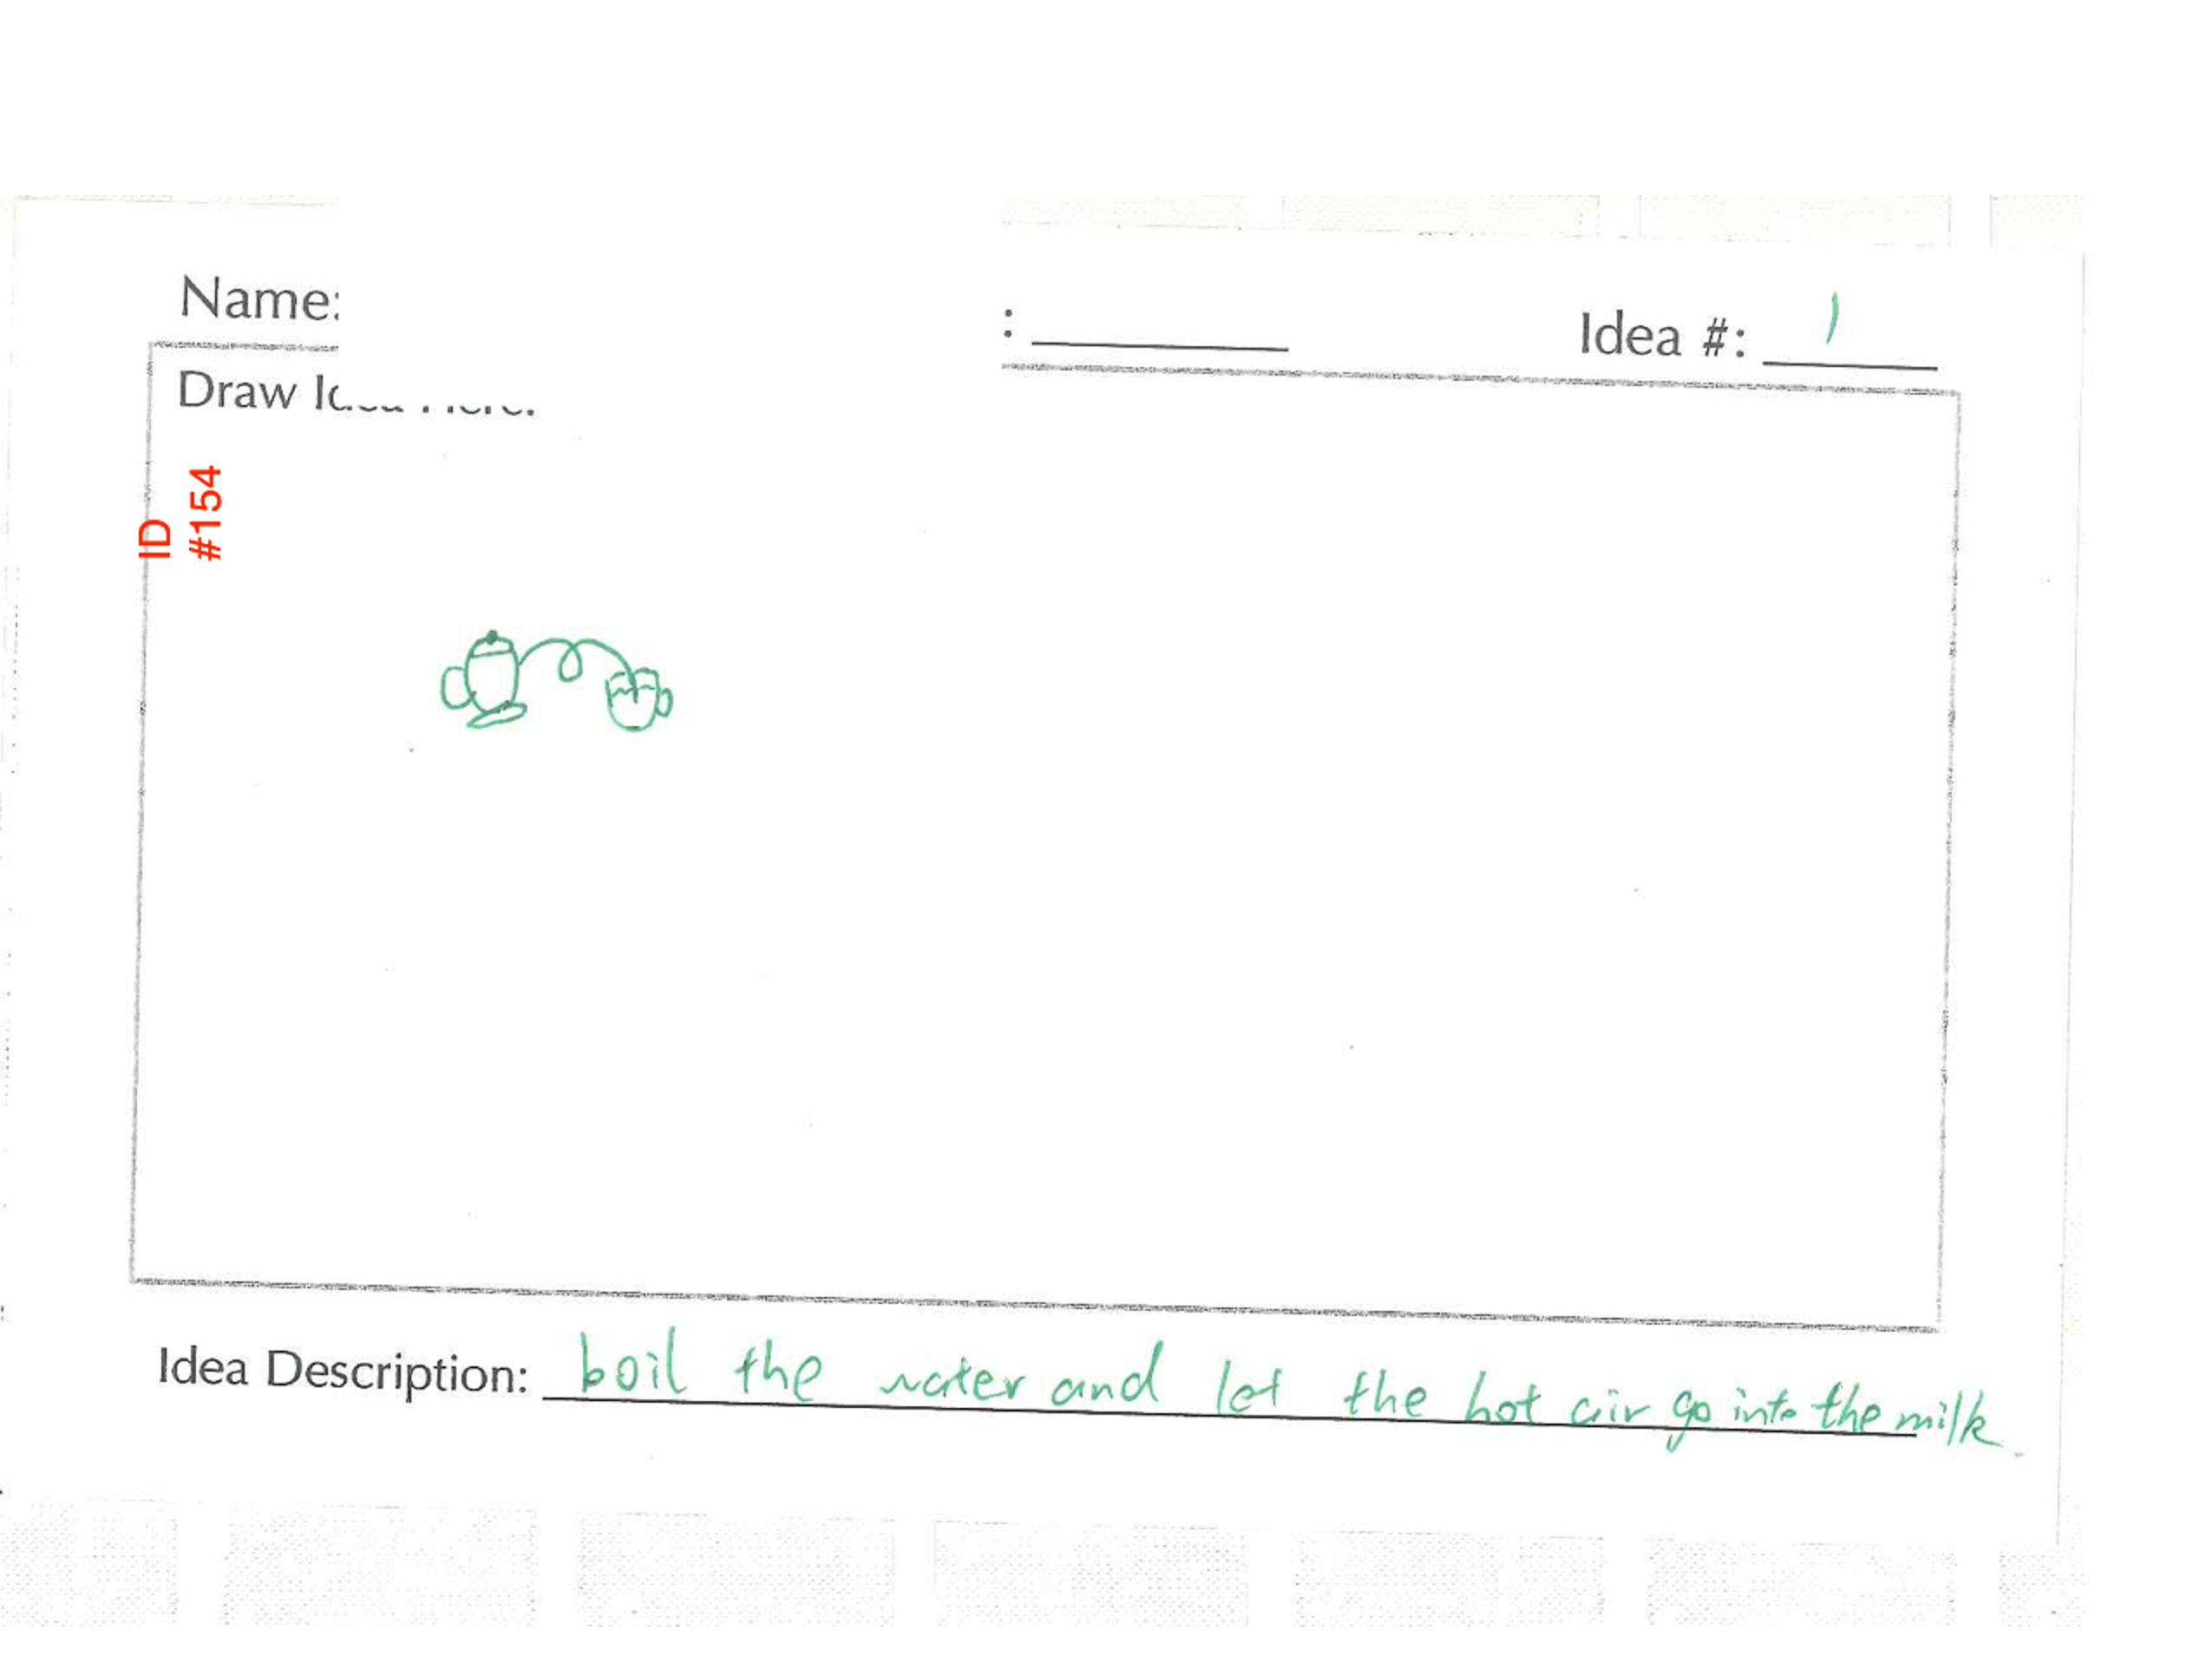 Name: : Idea #: 1
Draw
ID
#154
Idea Description: boil the water and let the hot air go into the milk.